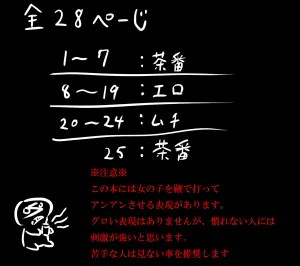 全28ぺーじ
1～7：茶番
8～19：エロ
20～24：ムチ
25：茶番
※注意※
この本には女の子を鞭で打って
アンアンさせる表現があります。
グロい表現はありませんが、慣れない人には
刺激が強いと思います。
苦手な人は見ない事を推奨します